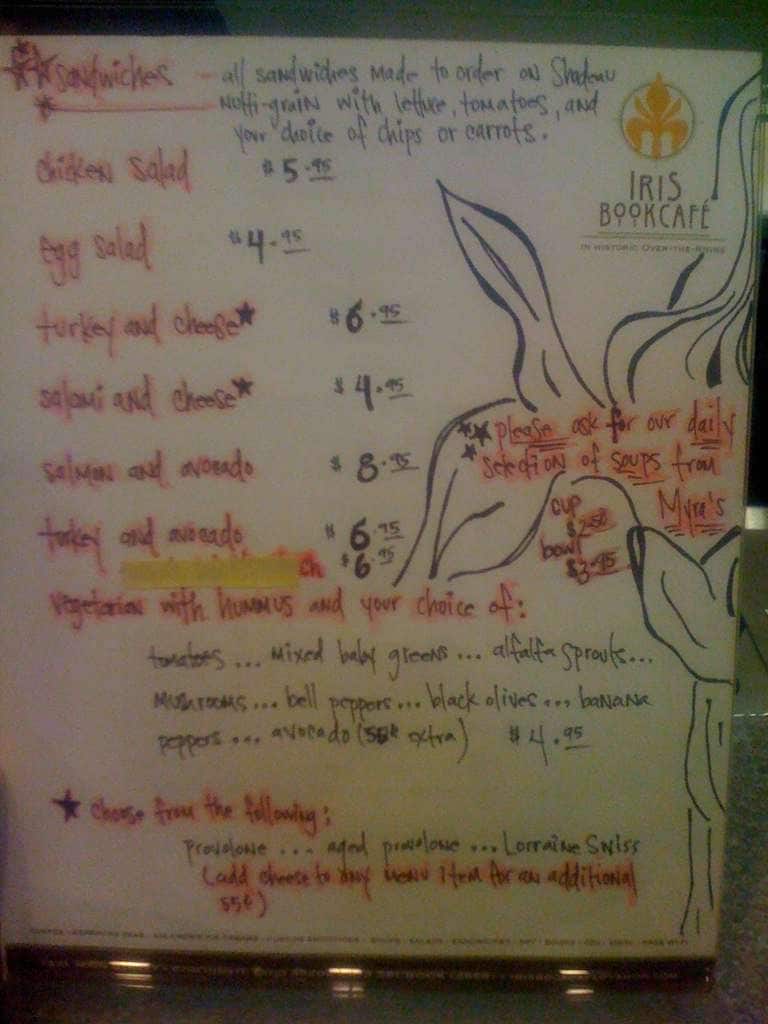 sandwiches - all sandwiches made to order on Shadeau
Multi-grain with lettuce, tomatoes, and
your choice of chips or carrots.
IRIS
BOOKCAFÉ
IN HISTORIC OVER-THE-RHINE
chicken salad $5.95
egg salad $4.95
turkey and cheese★ $6.95
salami and cheese★ $4.95
salmon and avocado $8.95
turkey and avocado $6.95
ch $6.95
please ask for our daily
selection of soups from
Myra's
cup
$2.50
bowl
$3.95
vegetarian with hummus and your choice of:
tomatoes... mixed baby greens... alfalfa sprouts...
mushrooms... bell peppers... black olives... banana
peppers... avocado (55¢ extra) $4.95
★ choose from the following:
provolone ... aged provolone ... Lorraine Swiss
(add cheese to any menu item for an additional
55¢)